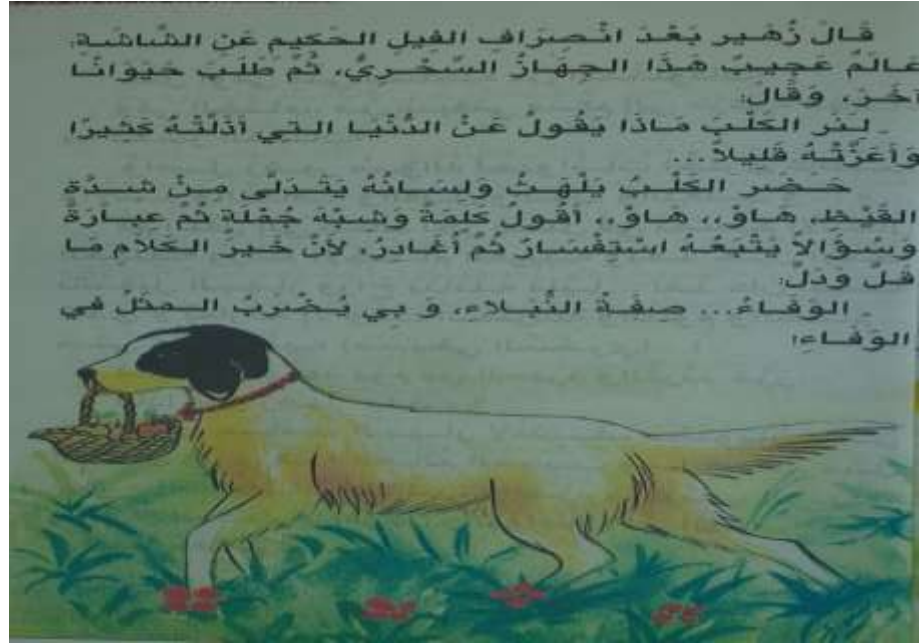 قَالَ زُهَير بَعْدَ انْصِرَافِ الفِيلِ الحَكِيمِ عَنِ الشَّاشَةِ:
عَالَمٌ عَجِيبٌ هَذَا الجِهَازُ السِّحْرِيُّ، ثُمَّ طَلَبَ حَيَوَانًا
آخَرَ، وَقَالَ:
ـ لِنَر الكَلْبَ مَاذَا يَقُولُ عَنْ الدُّنْيَا التِي أَذَلَّتْهُ كَثِيرًا
وَأَعَزَّتْهُ قَلِيلاً...
حَضَر الكَلْبُ يَلْهَثُ وَلِسَانُهُ يَتَدَلَّى مِنْ شِدَّة
القَيْظِ، هَاوْ،، هَاوْ،، أَقُولُ كَلِمَةً وَشِبْهَ جُمْلَةٍ ثُمَّ عِبَارَةً
وَسُؤَالاً يَتْبَعُهُ اسْتِفْسَارٌ ثُمَّ أُغَادِرُ، لأَنَّ خَيرَ الكَلَامِ مَا
قَلَّ وَدَلَّ:
ـ الوَفَاءُ... صِفَةُ النُّبَلاءِ، وَ بِي يُضْرَبُ المَثَلُ في
الوَفَاءِ!